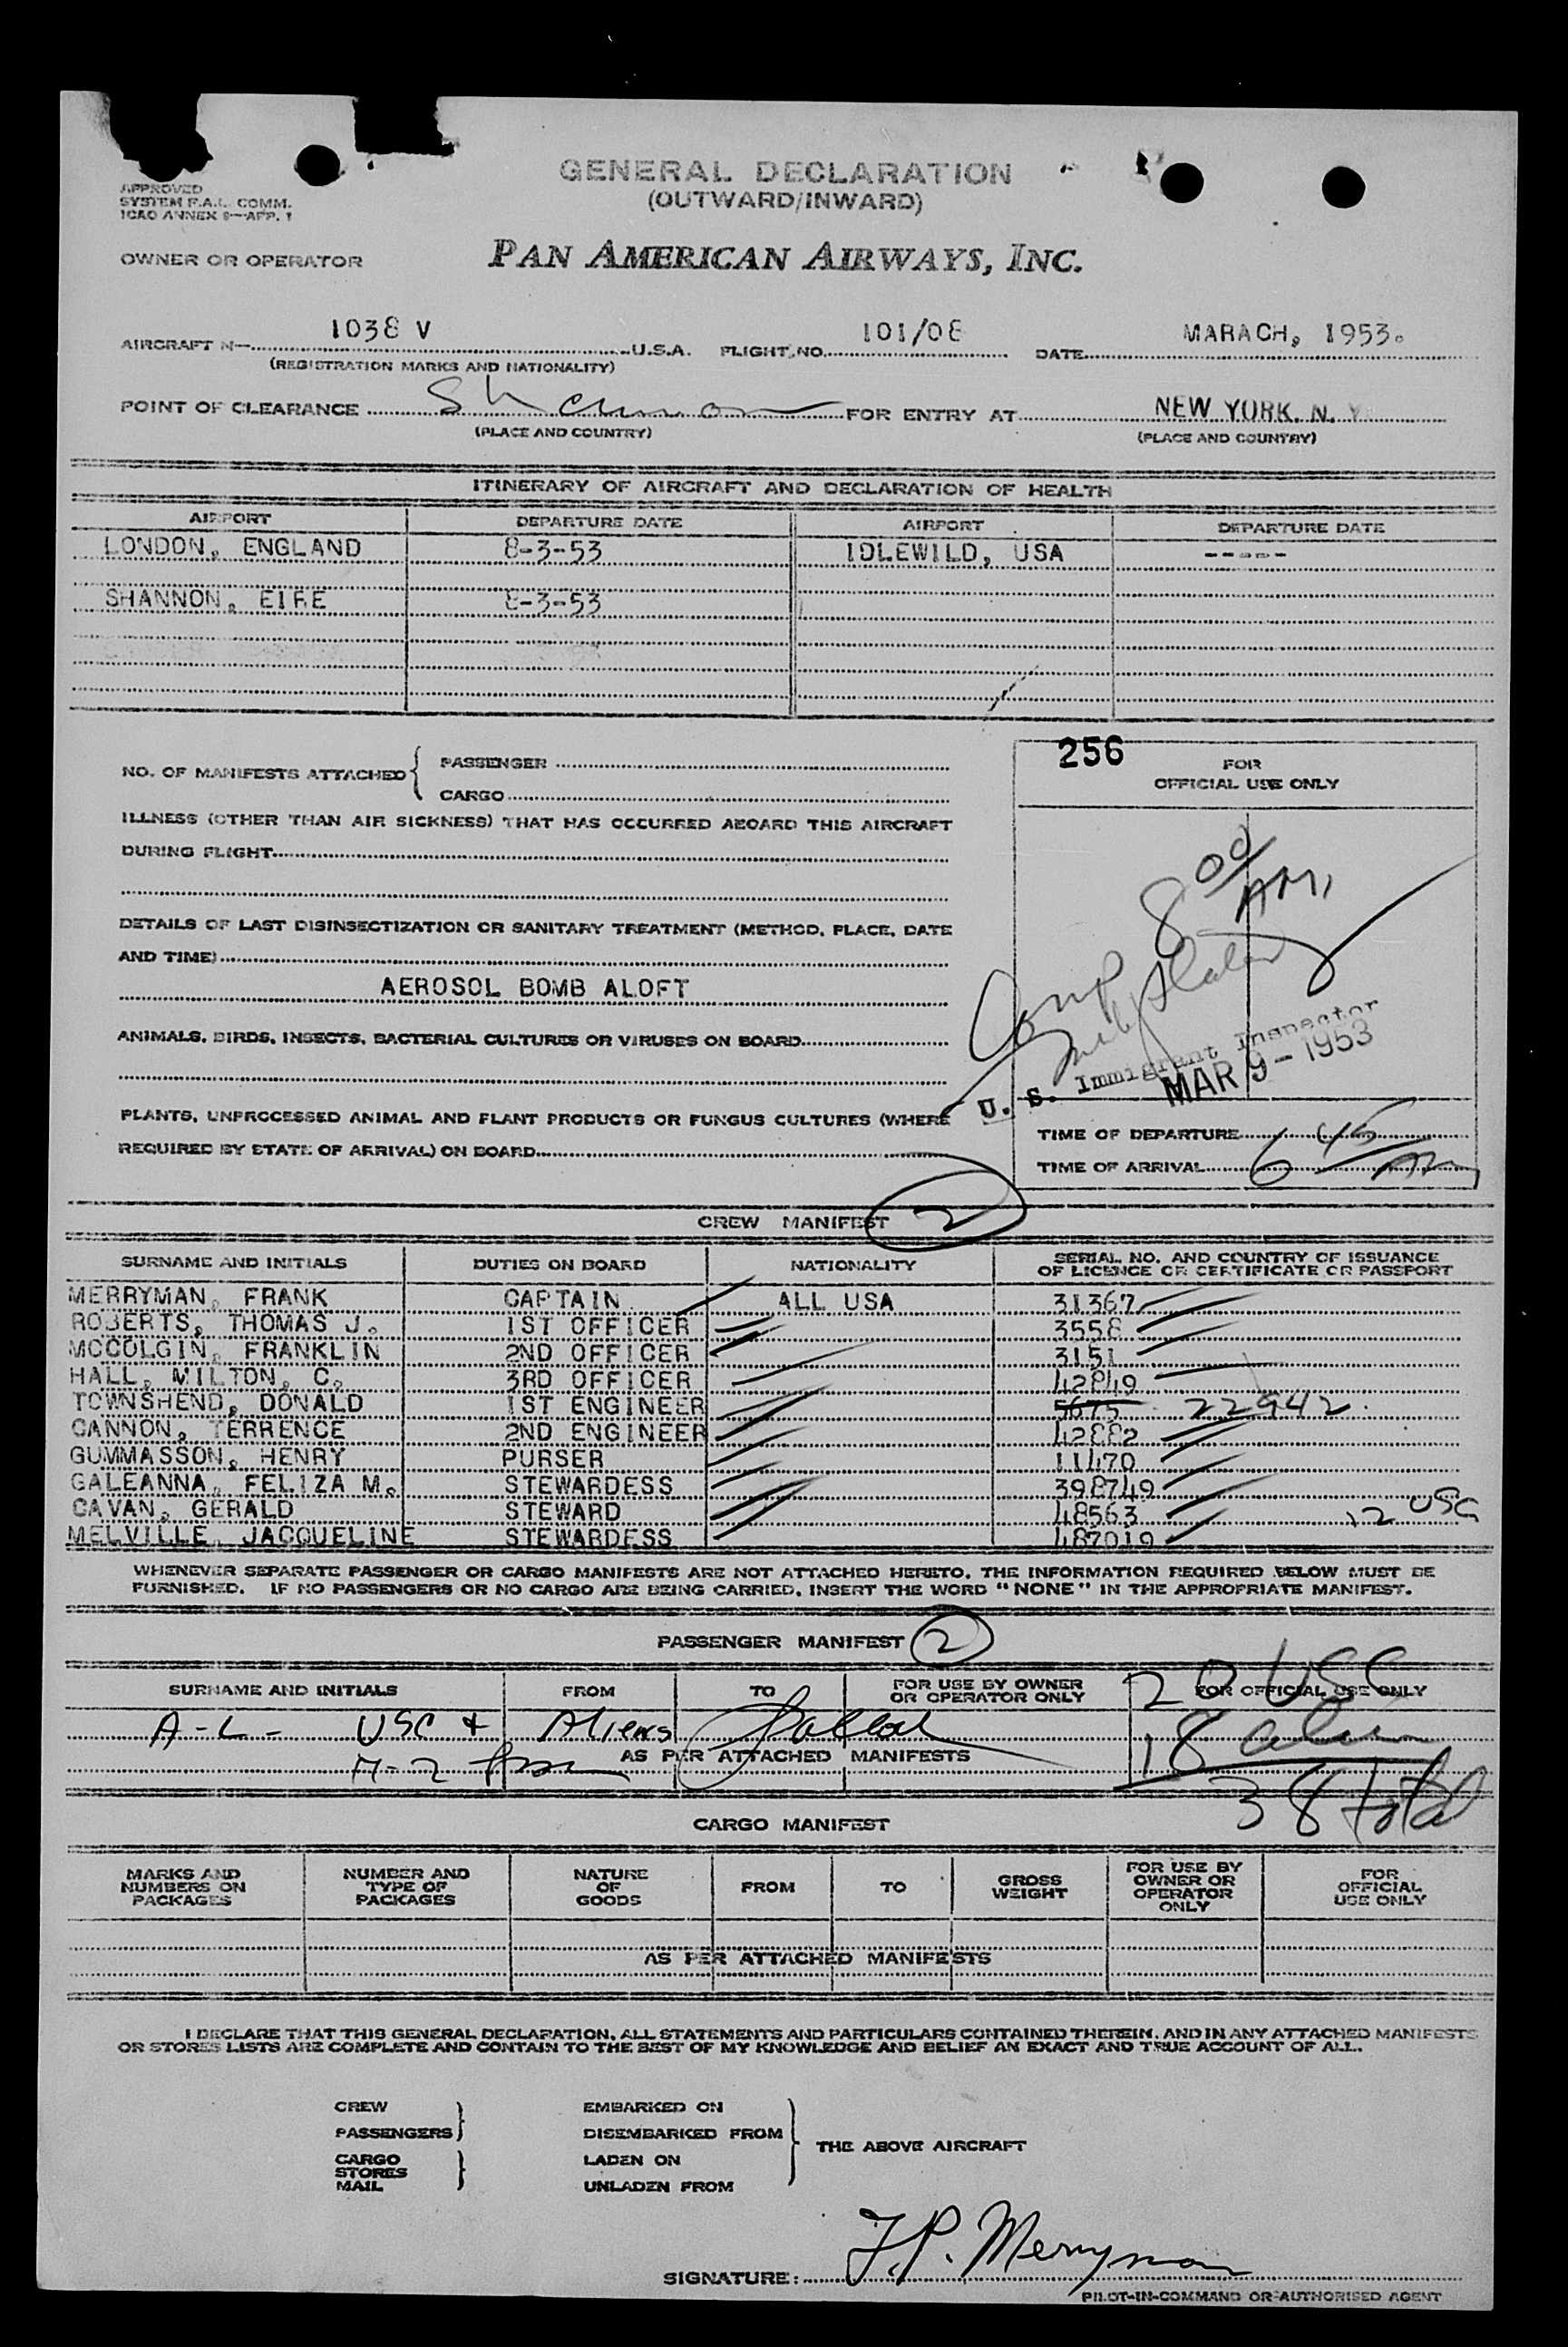 GENERAL DECLARATION
(OUTWARD/INWARD)
APPROVED
SYSTEM F.A.L. COMM.
ICAO ANNEX 9—APP. 1
OWNER OR OPERATOR PAN AMERICAN AIRWAYS, INC.
AIRCRAFT N— 1038 V U.S.A. FLIGHT NO. 101/08 DATE MARACH, 1953.
(REGISTRATION MARKS AND NATIONALITY)
POINT OF CLEARANCE Shannon FOR ENTRY AT NEW YORK, N. Y.
(PLACE AND COUNTRY) (PLACE AND COUNTRY)
ITINERARY OF AIRCRAFT AND DECLARATION OF HEALTH
AIRPORT DEPARTURE DATE AIRPORT DEPARTURE DATE
LONDON, ENGLAND 8-3-53 IDLEWILD, USA -----
SHANNON, EIRE 8-3-53
NO. OF MANIFESTS ATTACHED { PASSENGER
CARGO
256 FOR
OFFICIAL USE ONLY
ILLNESS (OTHER THAN AIR SICKNESS) THAT HAS OCCURRED ABOARD THIS AIRCRAFT
DURING FLIGHT
DETAILS OF LAST DISINSECTIZATION OR SANITARY TREATMENT (METHOD, PLACE, DATE
AND TIME)
AEROSOL BOMB ALOFT
ANIMALS, BIRDS, INSECTS, BACTERIAL CULTURES OR VIRUSES ON BOARD
PLANTS, UNPROCESSED ANIMAL AND PLANT PRODUCTS OR FUNGUS CULTURES (WHERE
REQUIRED BY STATE OF ARRIVAL) ON BOARD
8 00 AM
Comp
U. S. Immigrant Inspector
MAR 9 - 1953
TIME OF DEPARTURE
TIME OF ARRIVAL 6 45 AM
CREW MANIFEST 2
SURNAME AND INITIALS DUTIES ON BOARD NATIONALITY SERIAL NO. AND COUNTRY OF ISSUANCE
OF LICENCE OR CERTIFICATE OR PASSPORT
MERRYMAN, FRANK CAPTAIN ALL USA 31367
ROBERTS, THOMAS J. 1ST OFFICER 3558
MCCOLGIN, FRANKLIN 2ND OFFICER 3151
HALL, MILTON, C. 3RD OFFICER 42849
TOWNSHEND, DONALD 1ST ENGINEER 5675 22942
CANNON, TERRENCE 2ND ENGINEER 42882
GUMMASSON, HENRY PURSER 11470
GALEANNA, FELIZA M. STEWARDESS 398749
CAVAN, GERALD STEWARD 48563 12 USC
MELVILLE, JACQUELINE STEWARDESS 487019
WHENEVER SEPARATE PASSENGER OR CARGO MANIFESTS ARE NOT ATTACHED HERETO, THE INFORMATION REQUIRED BELOW MUST BE
FURNISHED. IF NO PASSENGERS OR NO CARGO ARE BEING CARRIED, INSERT THE WORD "NONE" IN THE APPROPRIATE MANIFEST.
PASSENGER MANIFEST 2
SURNAME AND INITIALS FROM TO FOR USE BY OWNER
OR OPERATOR ONLY FOR OFFICIAL USE ONLY
20 USC
A-L- USC + Aliens 18 alien
AS PER ATTACHED MANIFESTS
38 total
CARGO MANIFEST
MARKS AND
NUMBERS ON
PACKAGES
NUMBER AND
TYPE OF
PACKAGES
NATURE
OF
GOODS
FROM
TO
GROSS
WEIGHT
FOR USE BY
OWNER OR
OPERATOR
ONLY
FOR
OFFICIAL
USE ONLY
AS PER ATTACHED MANIFESTS
I DECLARE THAT THIS GENERAL DECLARATION, ALL STATEMENTS AND PARTICULARS CONTAINED THEREIN, AND IN ANY ATTACHED MANIFESTS
OR STORES LISTS ARE COMPLETE AND CONTAIN TO THE BEST OF MY KNOWLEDGE AND BELIEF AN EXACT AND TRUE ACCOUNT OF ALL.
CREW EMBARKED ON
PASSENGERS DISEMBARKED FROM THE ABOVE AIRCRAFT
CARGO LADEN ON
STORES
MAIL UNLADEN FROM
SIGNATURE: F.P. Merryman
PILOT-IN-COMMAND OR AUTHORISED AGENT